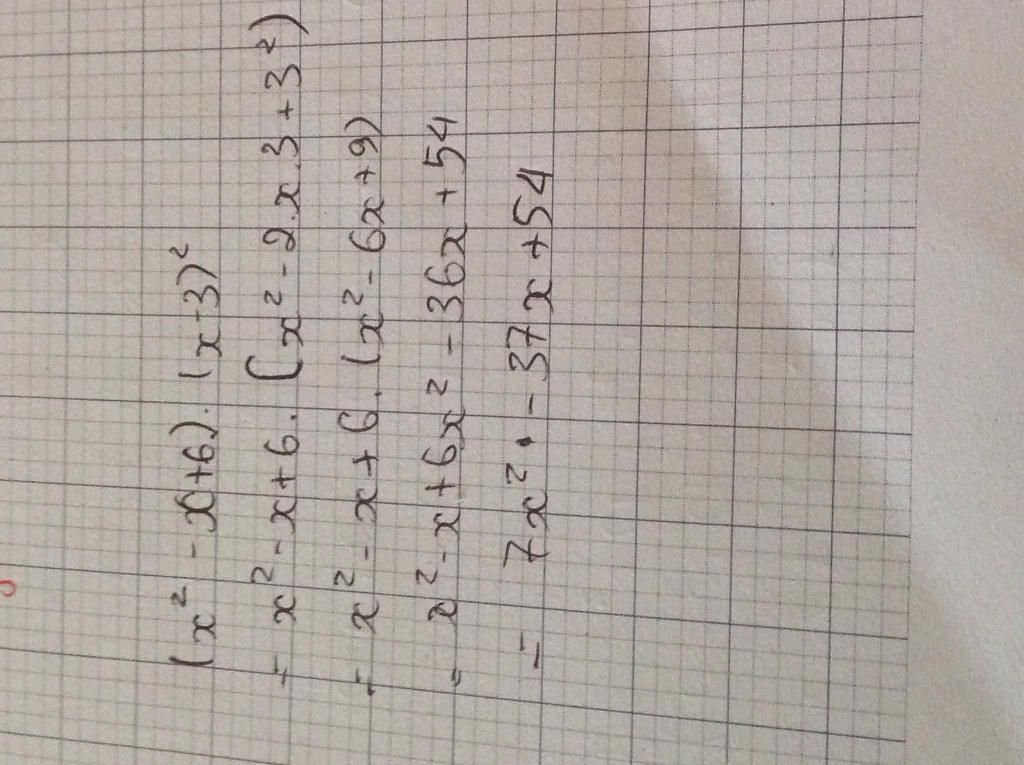 (x² - x+6). (x-3)²
= x² - x+6. (x² - 2.x.3+3²)
= x² - x+6. (x² - 6x+9)
= x² - x+6x² - 36x+54
= 7x² - 37x+54